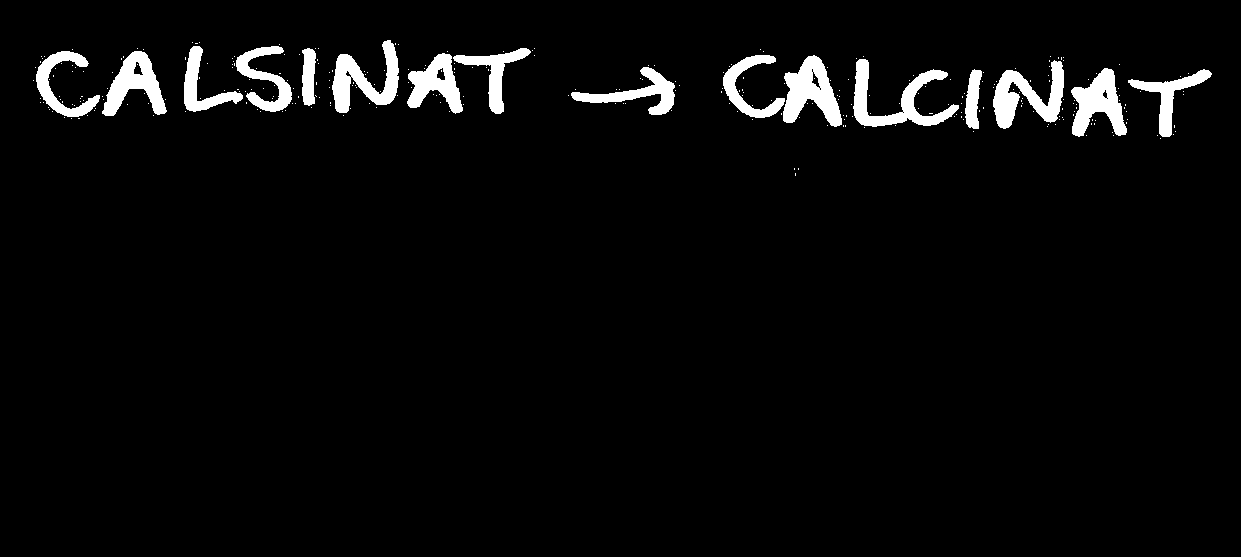 CALSINAT → CALCINAT